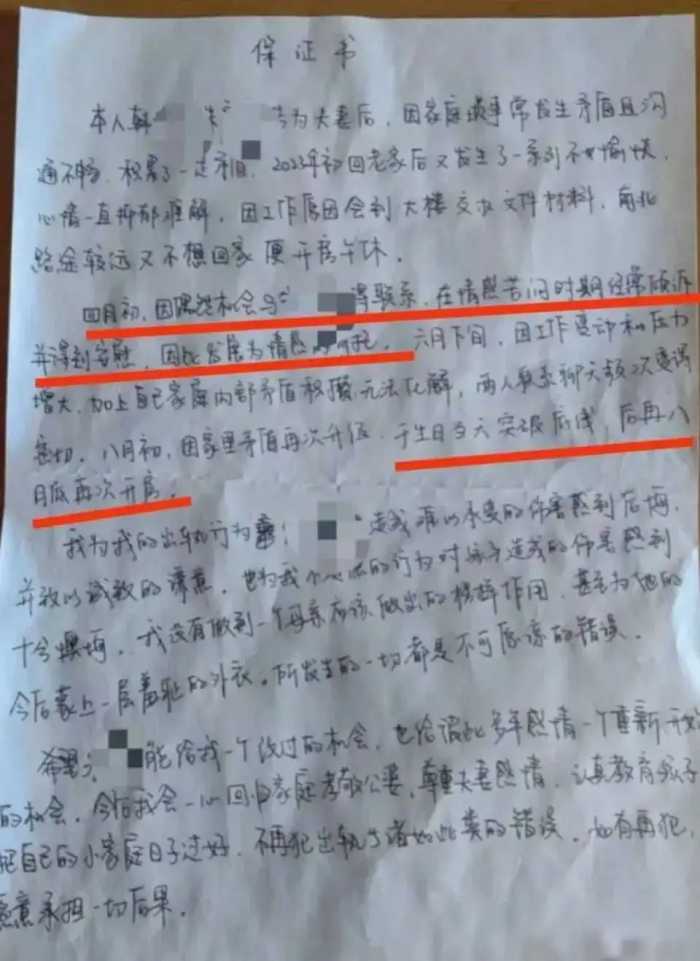 保证书
本人韩 为夫妻后,因家庭琐事常发生矛盾且沟
通不畅,积累了一定矛盾,2023年初回老家后又发生了一系列不愉快,
心情一直抑郁难解,因工作原因会到大楼交收文件材料,南北
路途较远又不想回家便开房午休。
四月初,因偶然机会与 得联系,在情感苦闷时期经常倾诉
并得到安慰,因此发展为情感 托。六月下旬,因工作变动和压力
增大,加上自己家庭内部矛盾积攒无法化解,两人联系聊天频次变得
密切。八月初,因家里矛盾再次升级,于生日当天突破底线,后再八
月底再次开房。
我为我的出轨行为 造成难以承受的伤害感到后悔,
并致以诚致的谦意,也为我个 的行为对孩子造成的伤害感到
十分懊悔,我没有做到一个母亲应该做出的榜样作用,甚至为他的
今后蒙上一层羞耻的外衣。所发生的一切都是不可原谅的错误。
希望 能给我一个改过的机会,也给彼此多年感情一个重新开
的机会,今后我会一心回归家庭孝敬公婆,尊重夫妻感情,认真教育孩子
把自己的小家庭日子过好,不再犯出轨等诸如此类的错误,如有再犯,
愿意承担一切后果。